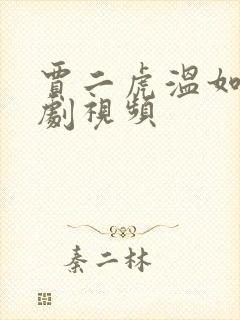 賈二虎溫如
劇視頻
秦二林